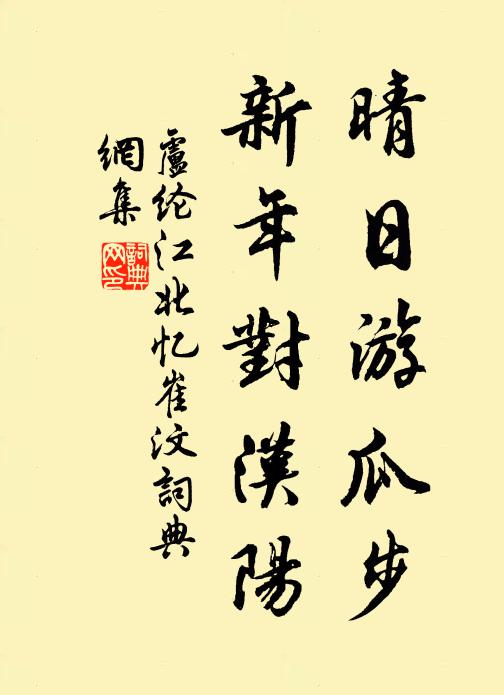 晴日游瓜步
新年對漢陽
盧纶江北忆崔汶詞典
網集
詞典
网印